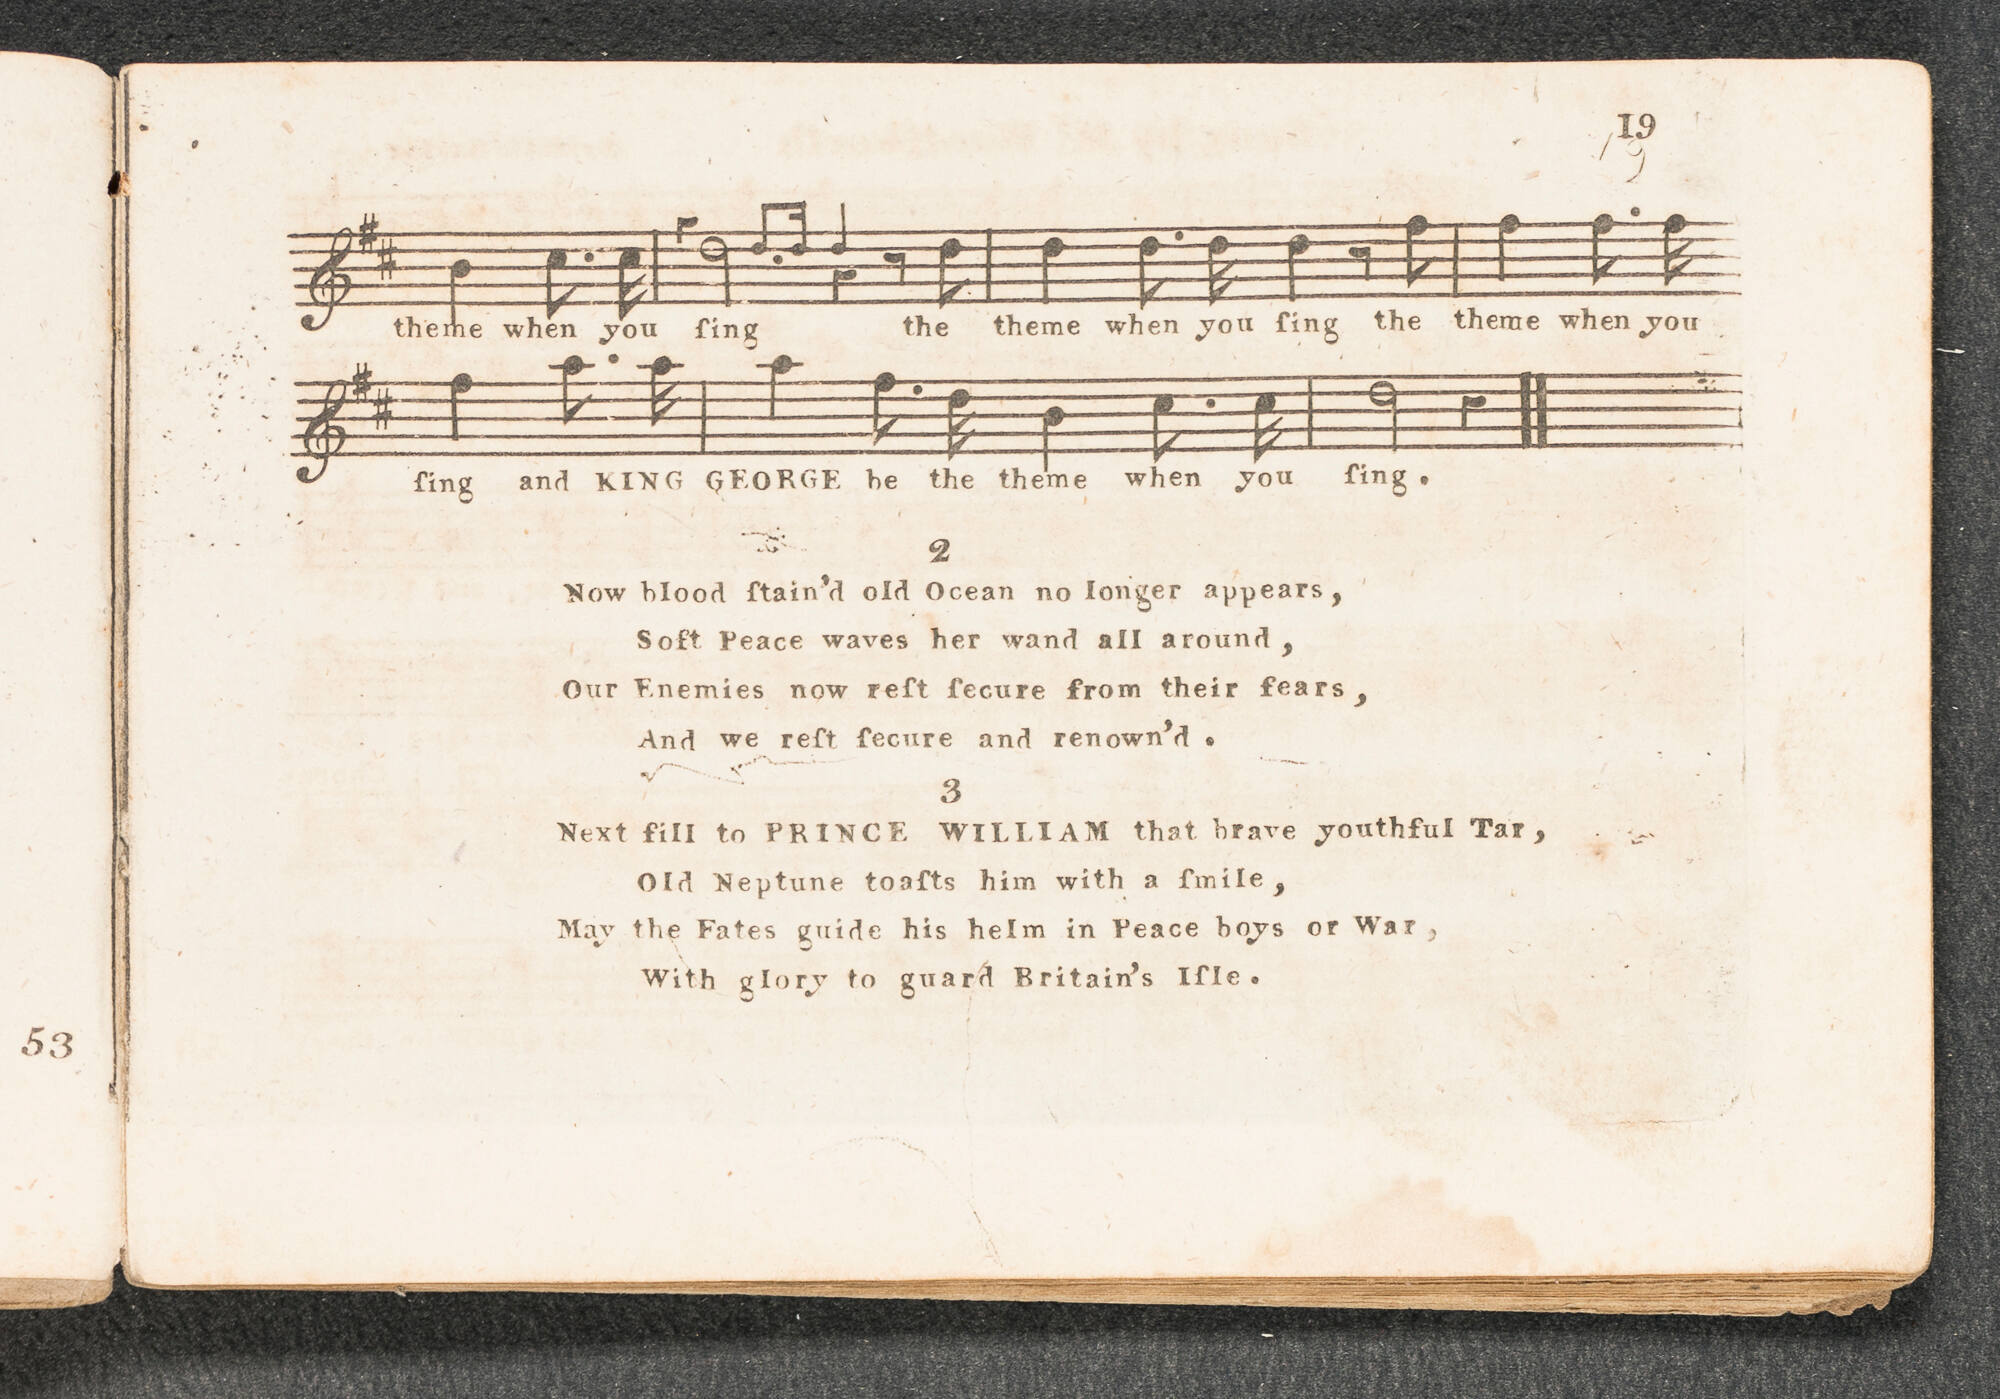 19
19
theme when you ſing the theme when you ſing the theme when you
ſing and KING GEORGE be the theme when you ſing.
2
Now blood ſtain'd old Ocean no longer appears,
Soft Peace waves her wand all around,
Our Enemies now reſt ſecure from their fears,
And we reſt ſecure and renown'd.
3
Next fill to PRINCE WILLIAM that brave youthful Tar,
Old Neptune toaſts him with a ſmile,
May the Fates guide his helm in Peace boys or War,
With glory to guard Britain's Iſle.
53